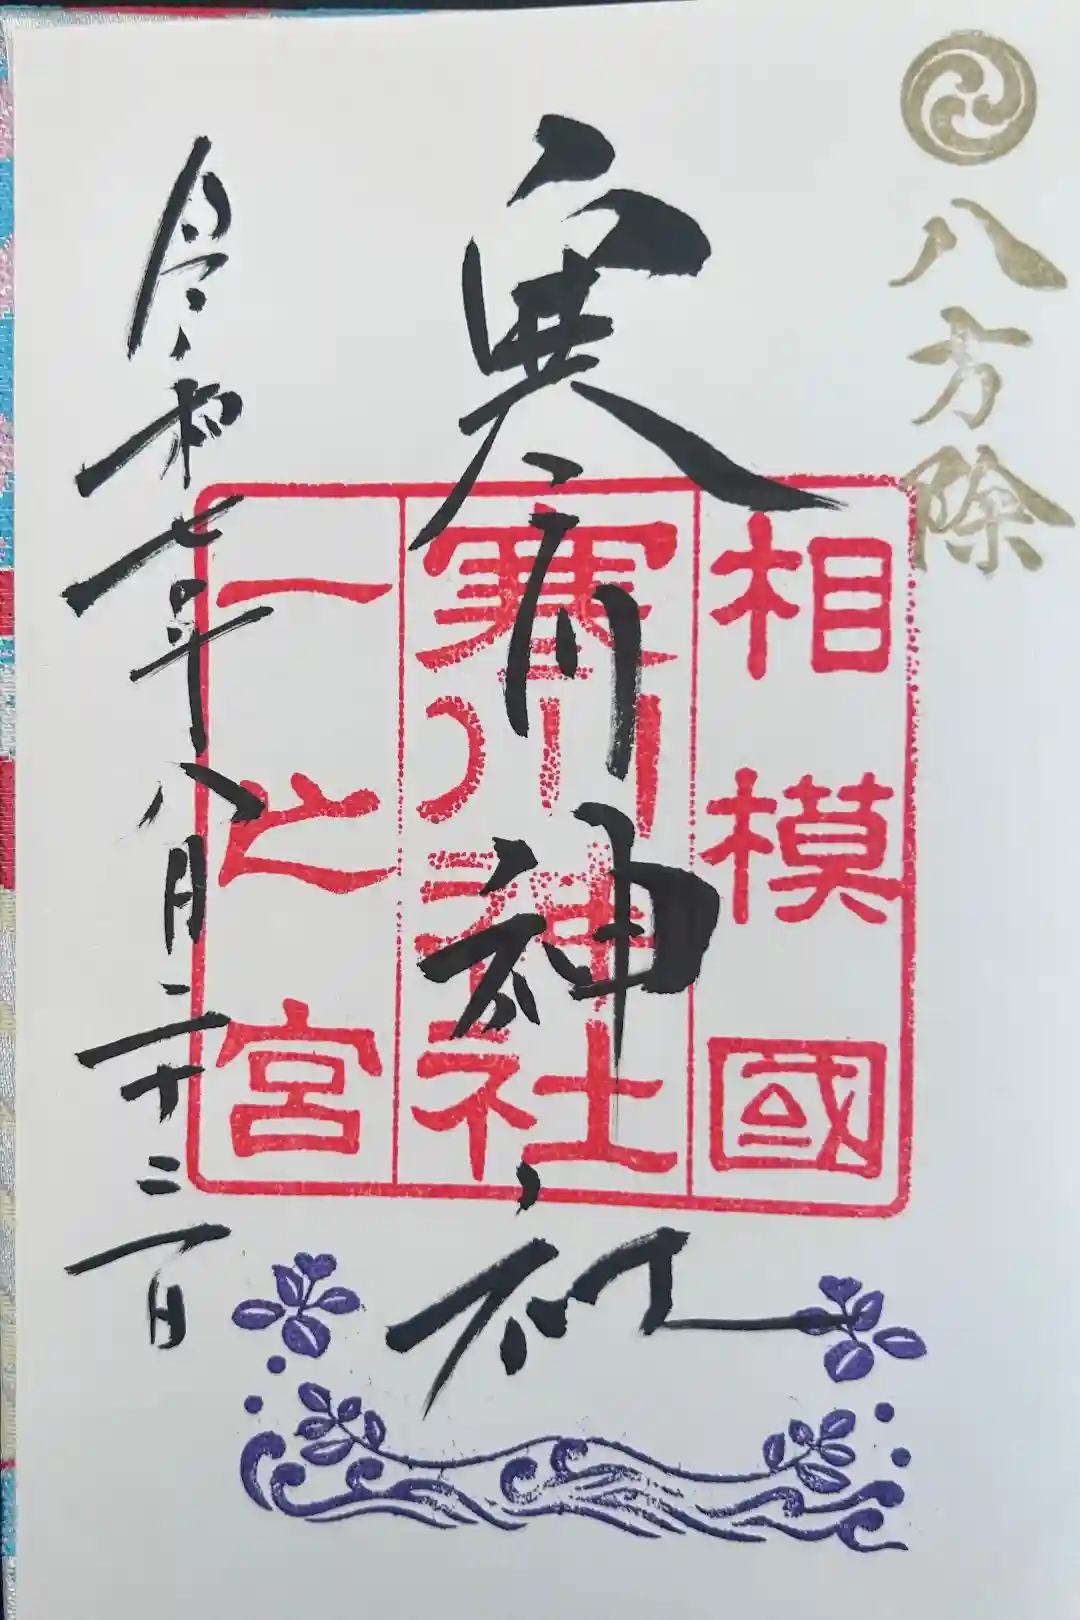 八方除
寒川神社
相模國
寒川神社
一之宮
令和七年八月二十二日